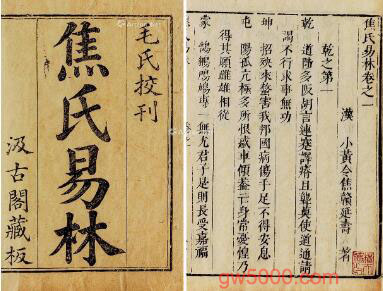 毛氏挍刊
焦氏易林
汲古閣藏板
焦氏易林卷之一
漢 小黃令焦贛延壽 著
乾之第一
乾 道陟多阪胡言連蹇譯瘖且聾莫使道通請
謁不行求事無功
坤 招殃來螫害我邦國病傷手足不得安息
屯 陽孤亢極多所恨惑車傾蓋亡身常憂惶乃
得其願雌雄相從
蒙 鳲鳩專一無尤君子是則長受嘉福
gw5000.com